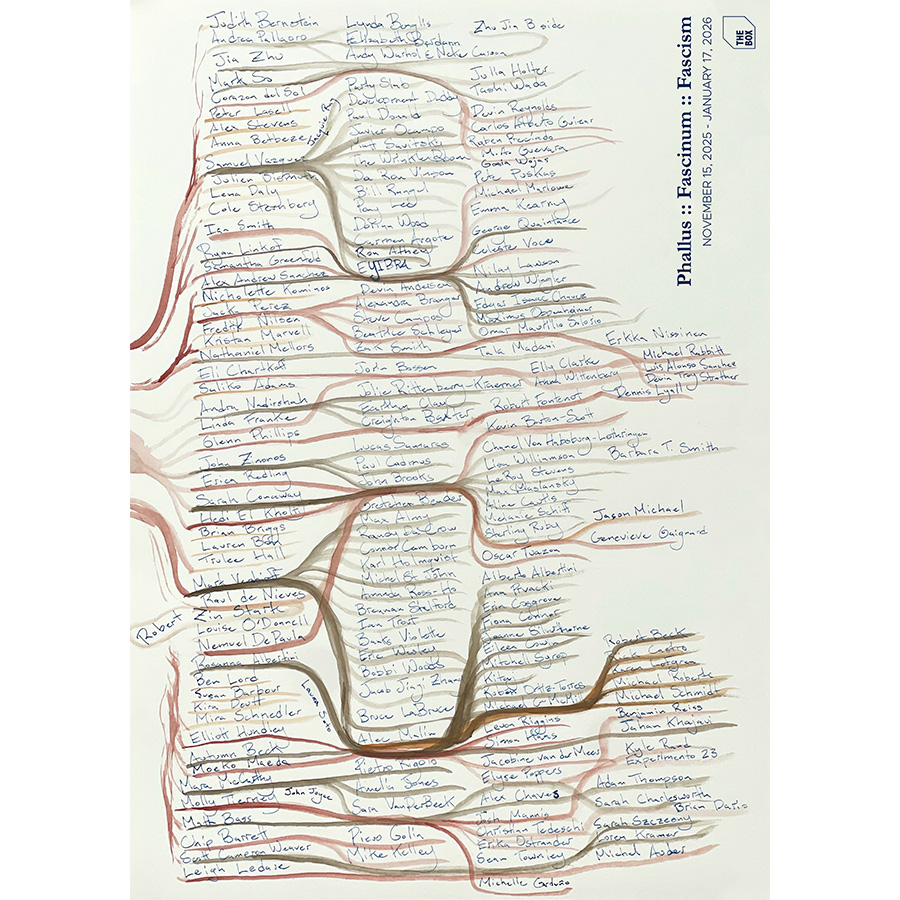 Judith Bernstein
Andrea Pallaoro
Jia Zhu
Mark So
Corazon del Sol
Peter Lasell
Alex Stevens
Anna Betbeze
Samuel Vazquez
Lena Daly
Cole Sternberg
Ian Smith
Ryan Linkof
Samantha Greenfeld
Alex Andrew Sanchez
Nicholette Kominos
Jacko Perez
Fredrik Nilsen
Kristan Marvell
Nathaniel Mellors
Eli Chartkoff
Saliko Adams
Andra Nadirshah
Linda Franke
Glenn Phillips
John Zinonos
Erica Redling
Sarah Conaway
Hedi El Kholti
Brian Briggs
Lauren Bon
Trulee Hall
Mark Verabioff
Raul de Nieves
Zin Starte
Louise O'Donnell
Nemuel DePaula
Rosanna Albertini
Ben Lord
Susan Barbour
Kira
Mira Schnedler
Elliott Hundley
Autumn Beck
Moeko Maeda
Mara McCarthy
Molly Tierney
Math Bass
Chip Barrett
Scott Cameron Weaver
Leigh Ledare
Robert
John Joyce
Lynda Benglis
Elisabeth
Andy Warhol & Neke Carson
Party Slab
Development Daddy
Paul Donald
Javier Ocampo
Savitsky
The Winkler Room
Da Ron Vinson
Bill
Paul
Dorian Wood
Carmen Argote
Ron Athey
EYIBRA
Devin Andersen
Alexandra Branger
Steve Campos
Beatrice Schleyer
Eric Smith
Jorin Bossen
Jolie Rittenberry-Kraemer
Earthen Clay
Creighton Baxter
Lucas Samaras
Paul Cadmus
John Brooks
Gretchen Bender
Max Almy
Connor Camburn
Karl Holmqvist
Michel St John
Amanda Ross-Ho
Brennan Stelford
Ian Trost
Banks Violette
Eric Wesley
Bobbi Woods
Jacob Jiaqi Zhang
Bruce LaBruce
Alec Malin
Pietro Rigolo
Amelia Jones
Sara VanDerBeek
Piero Golia
Mike Kelley
Zhu Jia B side
Julia Holter
Tashi Wada
Devin Reynolds
Carlos Alberto Guizar
Ruben Preciado
Mirto Guevara
Gosia Wojas
Pete Puskas
Michael Marlowe
Emma Kearney
George Quaintance
Celeste Voce
Nilay Lawson
Andrew Winkler
Edgar Isaac Chavez
Maximus Oppenheimer
Omar Maurilio Enlosio
Tala Madani
Elly Clarke
Anna Wittenberg
Robert Fontenot
Kevin Burton-Scott
Chanel Von Habsburg-Lothringen
Lisa Williamson
LeRoy Stevens
Max Maslansky
Aline Cautis
Melanie Schiff
Sterling Ruby
Oscar Tuazon
Alberto Albertini
Erin Cosgrove
Fiona Connor
Deanne Bilawthorne
Eileen Cowin
Mitchell Syrop
Robert Ortiz-Torres
Levon Riggins
Simon Haas
Jacobine van der Meer
Elyse Poppers
Alex Chaves
Josh Mannis
Christian Tedeschi
Erika Ostrander
Sean Townley
Michelle Carduño
Erkka Nissinen
Michael Rabbitt
Luis Alonso Sanchez
Devin Troy Strother
Dennis Lyall
Barbara T. Smith
Jason Michael
Genevieve Gaignard
Robert Beck
Michael Roberts
Michael Schmidt
Benjamin Reiss
Jahan Khajavi
Kyle Rand
Experimento 23
Adam Thompson
Sarah Charlesworth
Brian Davis
Sarah Szczesny
Loren Kramer
Michel Auder
Phallus :: Fascinum :: Fascism
NOVEMBER 15, 2025 - JANUARY 17, 2026
THE BOX